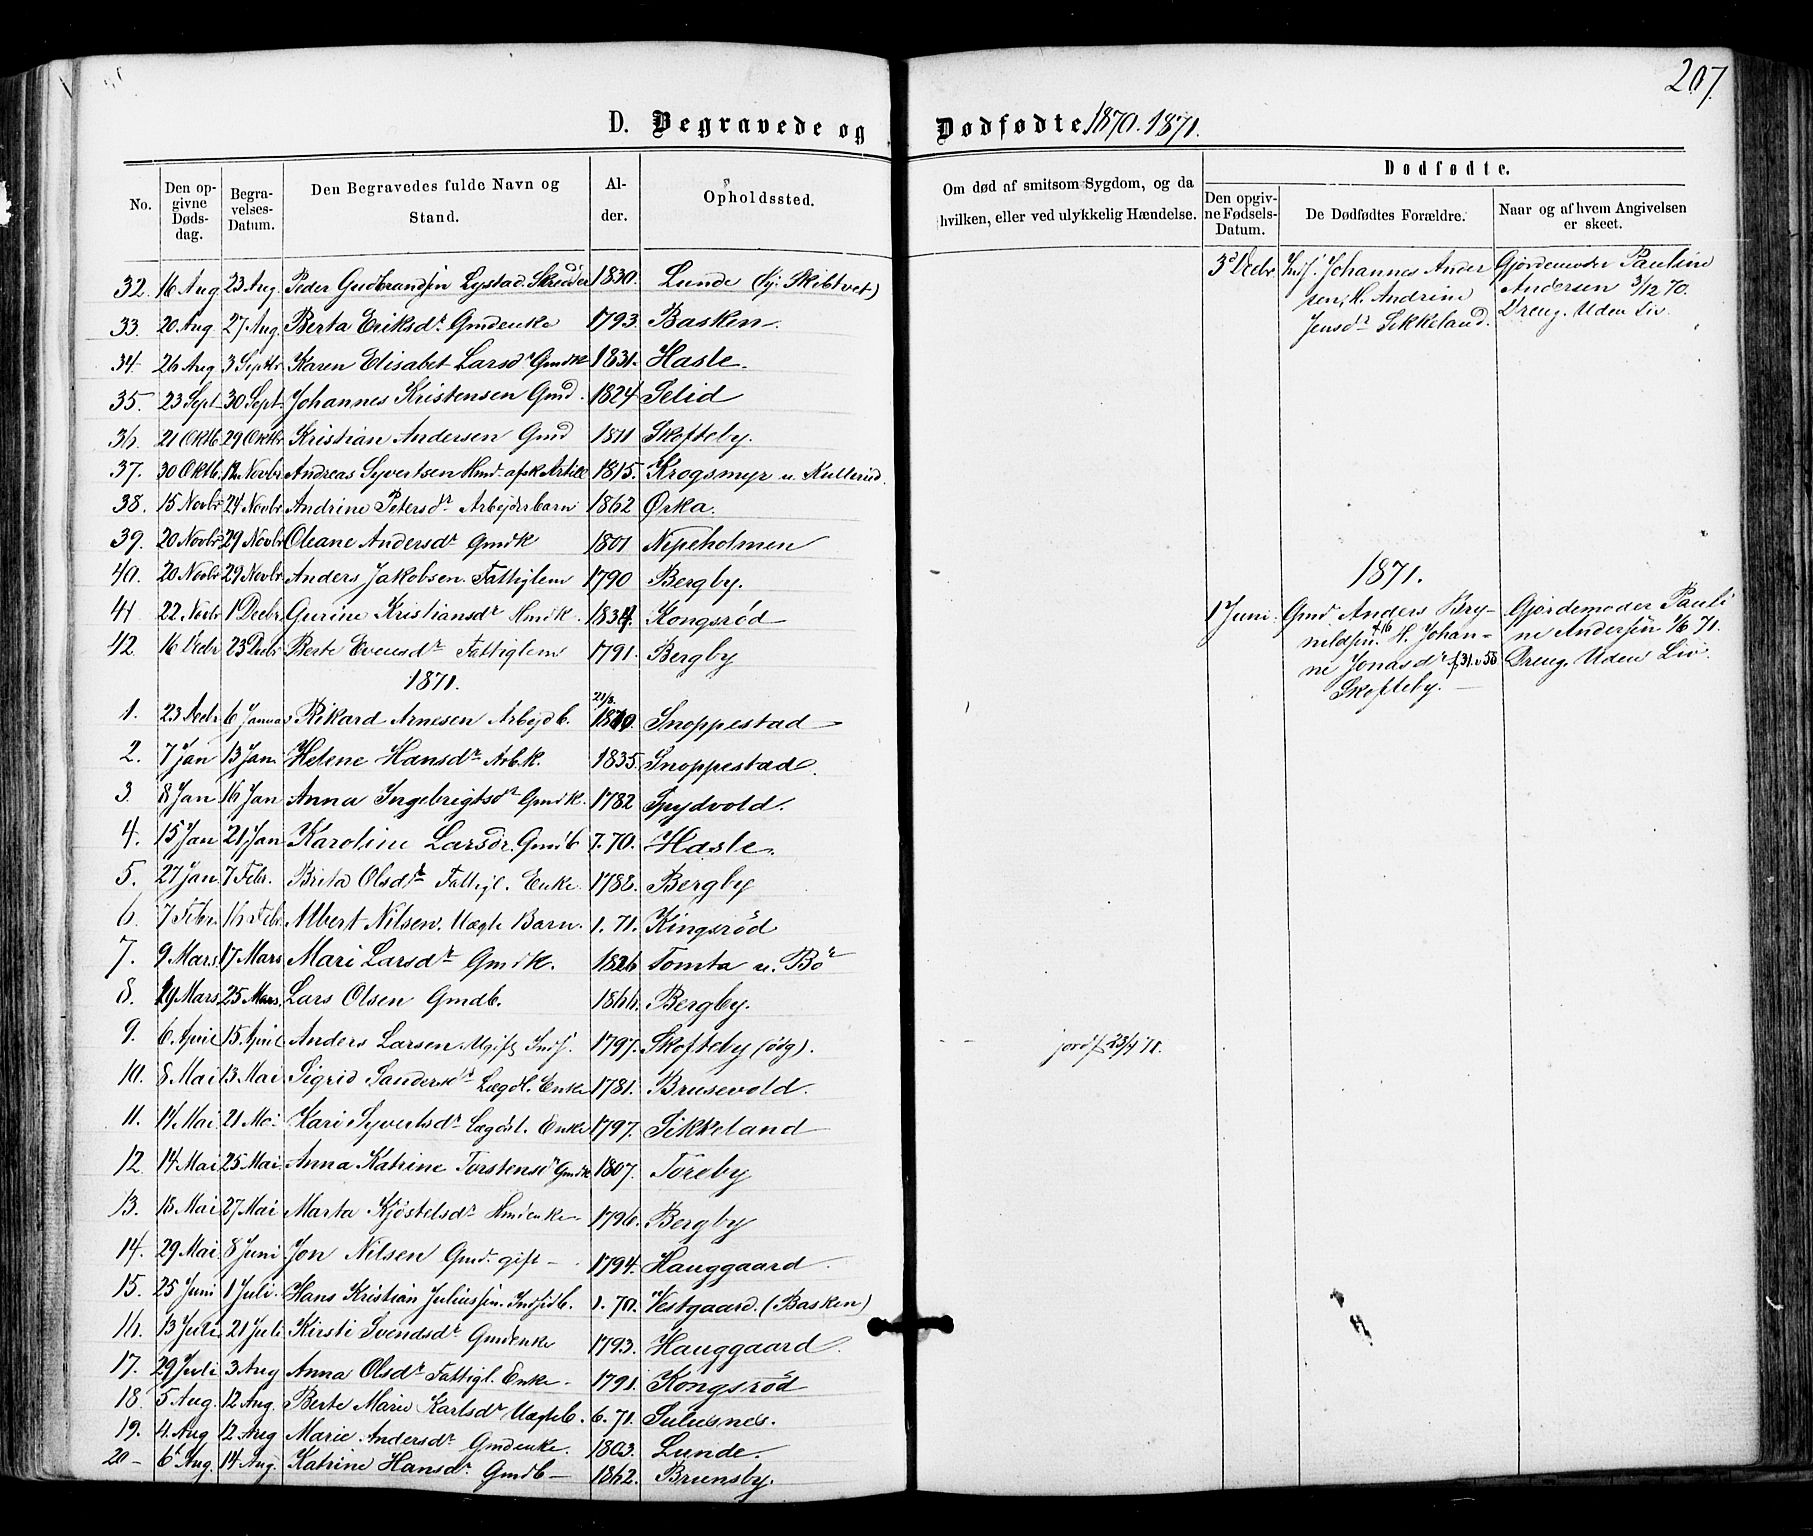 207.
D. Begravede og Dødfødte 1870. 1871.
No.
Den opgivne Dødsdag.
Begravelses-Datum.
Den Begravedes fulde Navn og Stand.
Alder.
Opholdssted.
Om død af smitsom Sygdom, og da hvilken, eller ved ulykkelig Hændelse.
Dødfødte.
Den opgivne Fødsels-Datum.
De Dødfødtes Forældre.
Naar og af hvem Angivelsen er skeet.
32. 16 Aug 23 Aug. Peder Gudbrandsen Lystad. Skrædder 1830. Lunde (Skibtvet)
33. 20 Aug 27 Aug. Berta Eriksdr Gmdenke 1793. Basken.
34. 26 Aug 3 Septbr Karen Elisabet Larsdr Gmdk 1831. Hasle.
35. 23 Sept 30 Sept. Johannes Kristensen Gmd. 1824 Selid
36. 21 Oktb. 29 Oktbr Kristian Andersen Gmd 1811 Skofteby.
37. 30 Oktb. 12 Novbr Andreas Syvertsen Hmd. afsk. Artill 1815. Krogsmyr u. Kullerud.
38. 15 Novbr 24 Novbr Andrine Petersdr Arbejderbarn 1862 Ørka.
39. 20 Novbr 29 Novbr Oleane Andersdr Gmdk 1801 Nipeholmen
40. 20 Novbr 29 Novbr Anders Jakobsen. Fattiglem 1790 Bergby.
41 22 Novbr 1 Decbr Gurine Kristiansdr Hmdk. 1834. Kongsrød
42. 16 Decbr 23 Decbr Berte Evensdr Fattiglem 1791. Bergby
1871.
1. 23 Decbr 6 Januar Rikard Arnesen Arbejdb. 21/3. 1870. Snoppestad
2. 7 Jan 13 Jan. Helene Hansdr Arb.k. 1835. Snoppestad.
3. 8 Jan 16 Jan Anna Ingebrigtsdr Gmdk. 1782 Spydvold.
4. 15 Jan 21 Jan Karoline Larsdr. Gmdb 7. 70. Hasle.
5. 27 Jan 7 Febr. Brita Olsdr Fattigl. Enke. 1788. Bergby
6. 7 Febr. 16 Febr Albert Nilsen. Uægte Barn. 1. 71. Kingsrød
7. 9 Mars 17 Mars Mari Larsdr Gmdk. 1826 Tomta u. Bø
8. 19 Mars 25 Mars. Lars Olsen Gmdb. 1866. Bergby.
9. 6 April 15 April Anders Larsen. Ugift Inds. 1797. Skofteby (ødg). jordf. 23/4 71.
10. 8 Mai 13 Mai Sigrid Sandersdr Lægdl. Enke 1781. Brusevold.
11. 14 Mai 21 Mai Kari Syvertsdr Lægdsl. Enke 1797. Sikkeland
12. 14 Mai 25 Mai. Anna Katrine Torstensdr Gmdk 1807. Toreby
13. 18 Mai 27 Mai Marta Kjøstelsdr Hmdenke. 1796. Bergby
14. 29 Mai 8 Juni Jon Nilsen Gmd. gift 1794. Hauggaard.
15. 25 Juni 1 Juli. Hans Kristian Juliussen. Indsidb. 1. 70. Vestgaard. (Basken)
16. 13 Juli 21 Juli Kirsti Svendsdr Gmdenke 1793. Hauggaard.
17. 29 Juli 3 Aug Anna Olsdr Fattigl. Enke. 1791. Kongsrød
18. 5 Aug. 12 Aug. Berte Marie Karlsdr Uægteb. 6. 71. Sulusnes.
19. 4 Aug 12 Aug Marie Andersdr Gmdenke. 1803. Lunde.
20 6 Aug. 14 Aug. Katrine Hansdr Gmdb 1862. Brunsby.
3 Decbr Inds. Johannes Ander Gjordemoder Pauline
sen, H. Andrine Andersen 3/12 70.
Jensdr Sikkeland. Dreng. Uden Liv.
1871.
1 Juni. Gmd. Anders Bry- Gjordemoder Pauli
nildsen. f. 16 H. Johan- ne Andersen 1/6 71.
ne Jonasdr f. 31. Dreng. Uden Liv.
Skofteby.